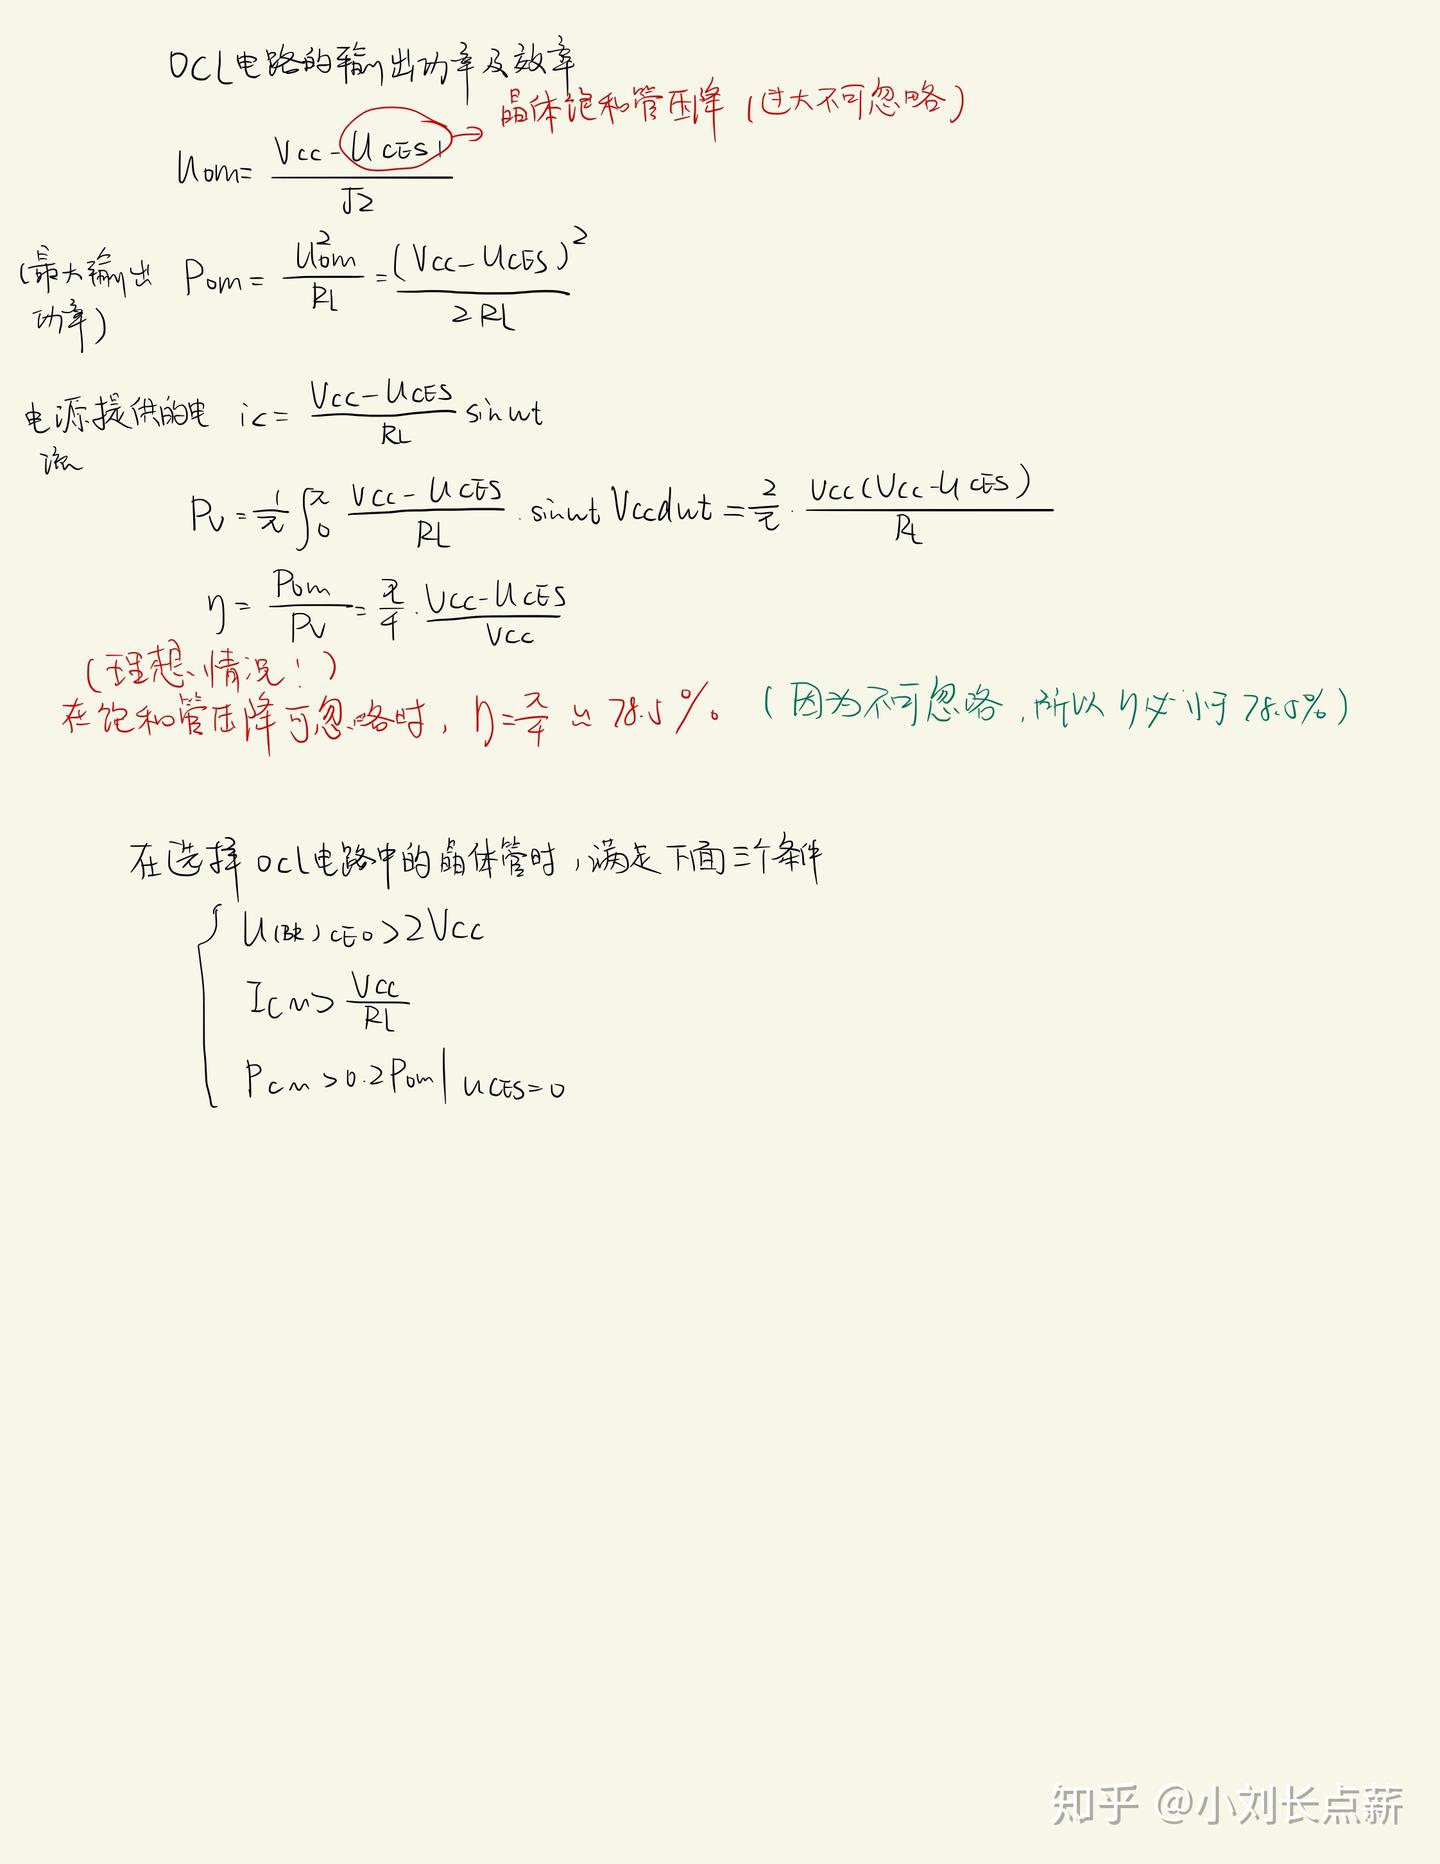 OCL电路的输出功率及效率
晶体饱和管压降(过大不可忽略)
Uom= (Vcc-UCES)/√2
(最大输出功率) Pom= U²om/RL = (Vcc-UCES)²/2RL
电源提供的电流 ic= (Vcc-UCES)/RL sinωt
Pv=1/π ∫₀^π (Vcc-UCES)/RL · sinωt Vccdωt = 2/π · Vcc(Vcc-UCES)/RL
η= Pom/Pv = π/4 · (Vcc-UCES)/Vcc
(理想情况!)
在饱和管压降可忽略时, η=π/4 ≈ 78.5% (因为不可忽略,所以η必小于78.5%)
在选择OCL电路中的晶体管时,满足下面三个条件
{ U(BR)CEO>2Vcc
ICM> Vcc/RL
PCM>0.2Pom| UCES=0
知乎 @小刘长点薪